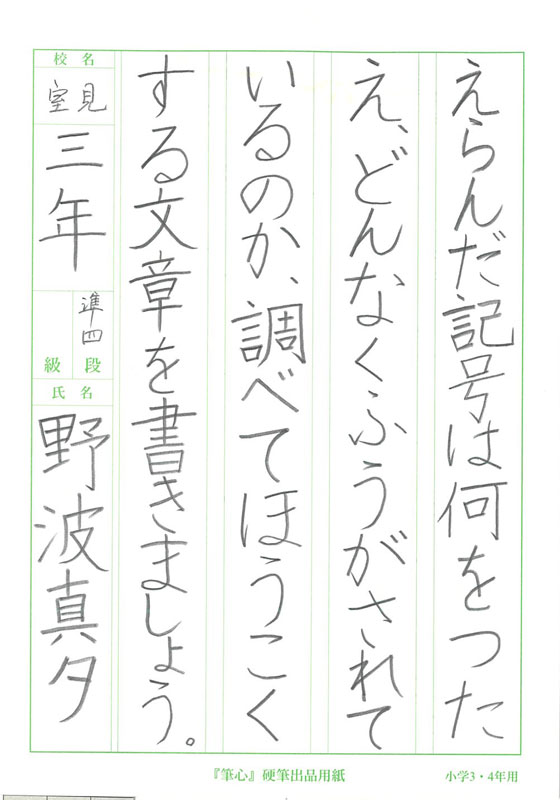 えらんだ記号は何をつた
え、どんなくふうがされて
いるのか、調べてほうこく
する文章を書きましょう。
校名
室見
三年
準四
級段
氏名
野波真夕
『筆心』硬筆出品用紙
小学3・4年用